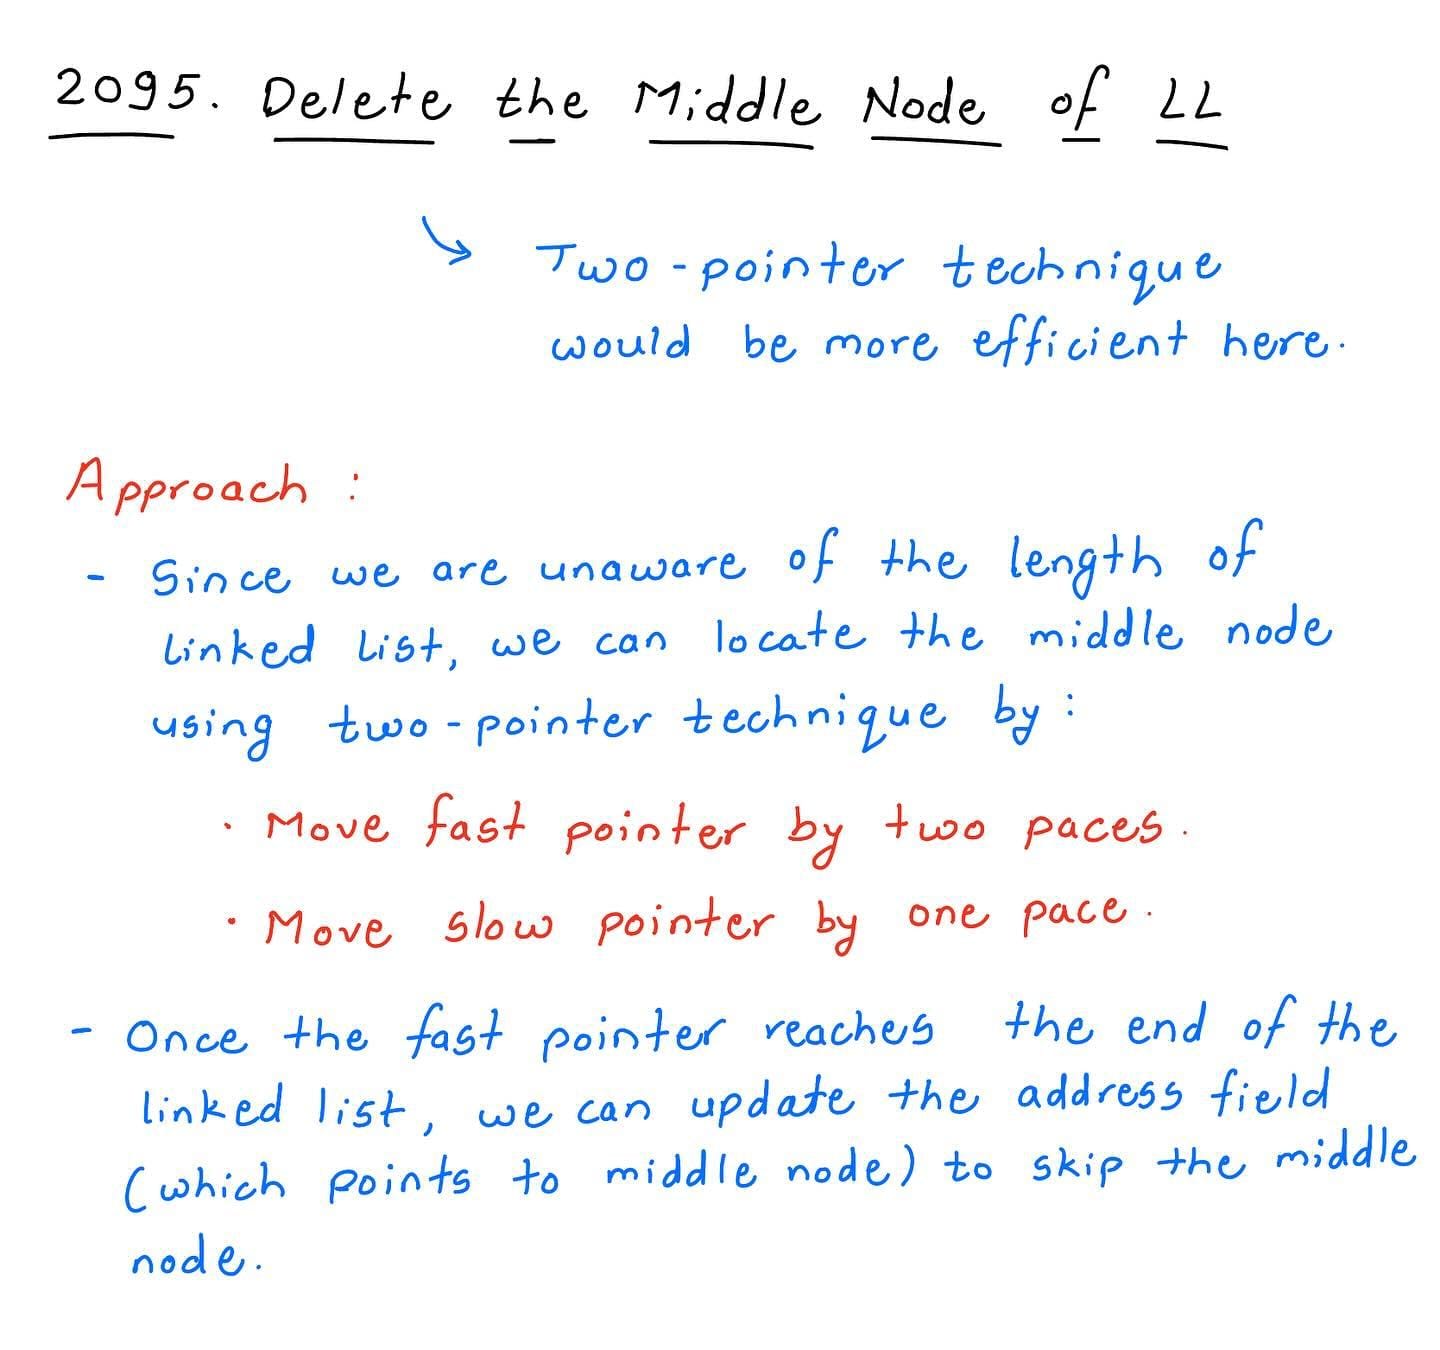 2095. Delete the Middle Node of LL
Two-pointer technique
would be more efficient here.
Approach :
- Since we are unaware of the length of
linked list, we can locate the middle node
using two-pointer technique by :
· Move fast pointer by two paces.
· Move slow pointer by one pace.
- Once the fast pointer reaches the end of the
linked list, we can update the address field
(which points to middle node) to skip the middle
node.